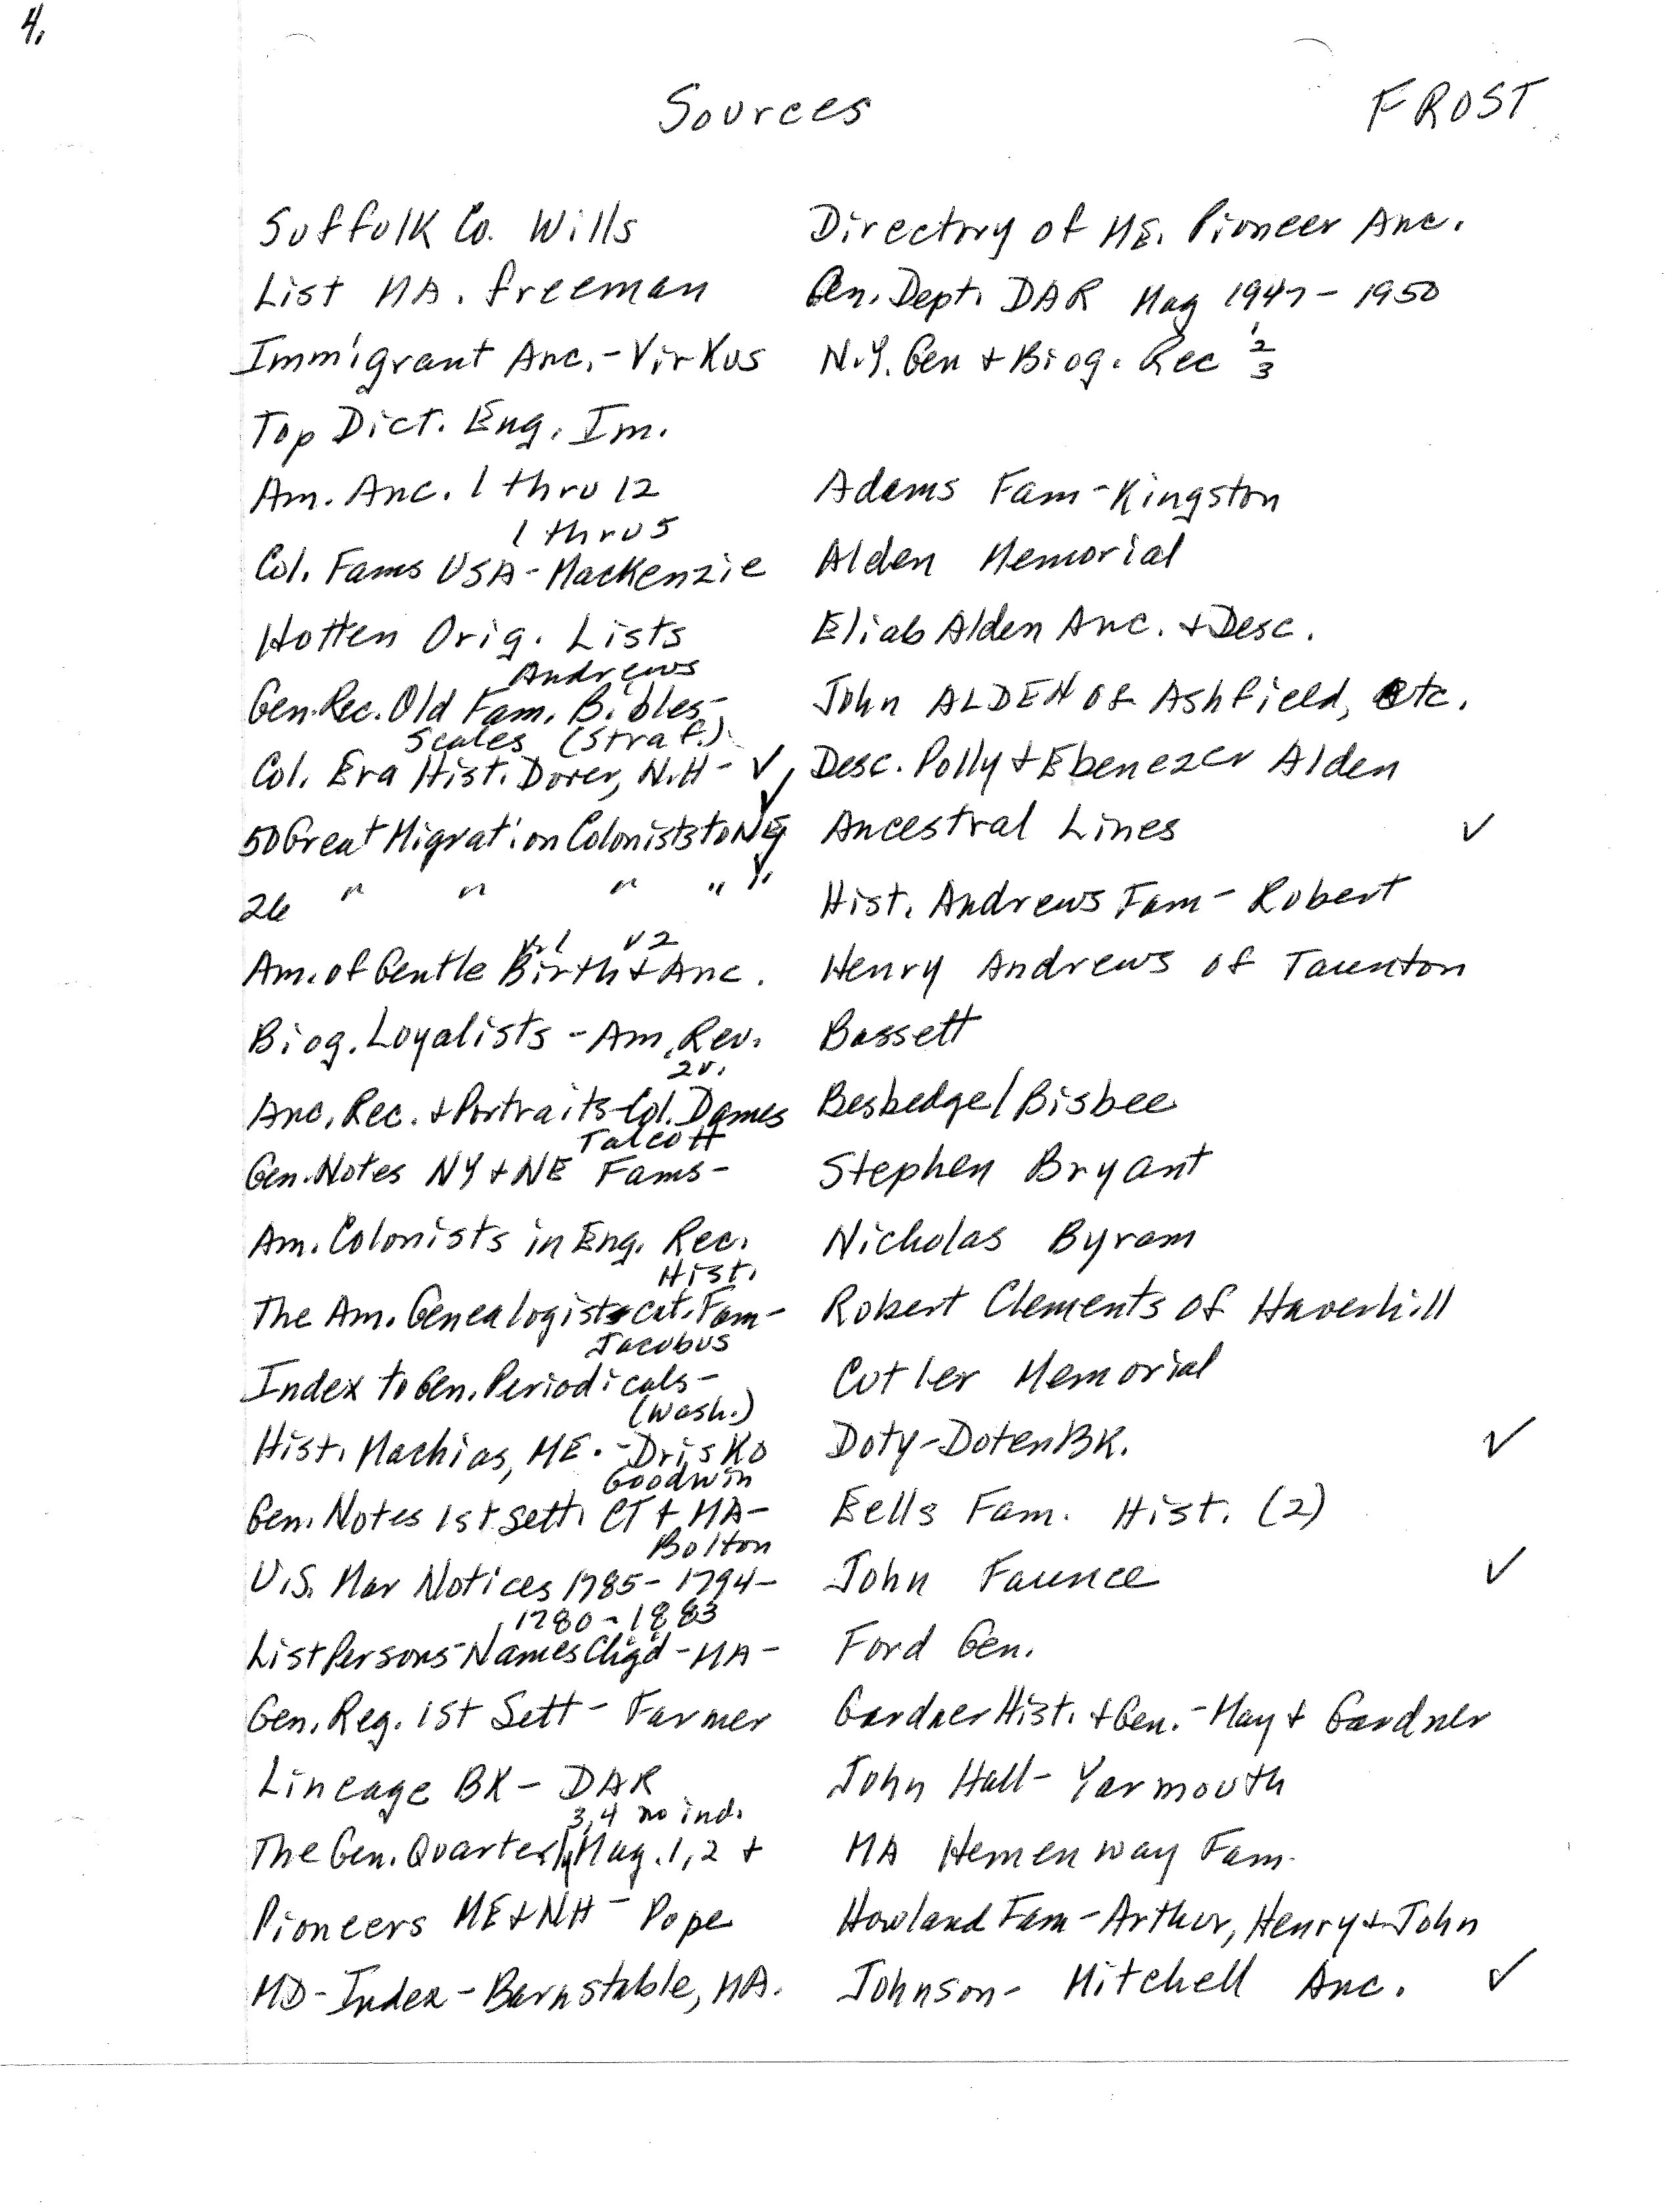 4.
Sources
FROST
Suffolk Co. Wills
List MA. freeman
Immigrant Anc.- Virkus
Top Dict. Eng. Im.
Am. Anc. 1 thru 12
1 thru 5
Col. Fams USA - MacKenzie
Hotten Orig. Lists
Andrews
Gen. Rec. Old Fam. Bibles-
Scales (Straf.)
Col. Era Hist. Dover, N.H - ✓
50 Great Migration Colonists to NE ✓
26 " " " " " ✓
v.1 v2
Am. of Gentle Birth & Anc.
Biog. Loyalists - Am. Rev.
2v.
Anc. Rec. & Portraits-Col. Dames
Talcott
Gen. Notes NY & NE Fams-
Am. Colonists in Eng. Rec.
Hist.
The Am. Genealogist-cat. Fam-
Jacobus
Index to Gen. Periodicals-
(Wash.)
Hist. Machias, ME. - Drisko
Goodwin
Gen. Notes 1st. Sett. CT & MA-
Bolton
U.S. Mar Notices 1785-1794-
1780-1883
List Persons-Names Chg'd-MA-
Gen. Reg. 1st Sett - Farmer
Lineage BK - DAR
3,4 no ind.
The Gen. Quarterly Mag. 1,2 &
Pioneers ME & NH - Pope
MD-Index-Barnstable, MA.
Directory of ME. Pioneer Anc.
Gen. Dept. DAR Mag 1947-1950
1
N.Y. Gen & Biog. Rec 2
3
Adams Fam-Kingston
Alden Memorial
Eliab Alden Anc. & Desc.
John ALDEN of Ashfield, etc.
Desc. Polly & Ebenezer Alden
Ancestral Lines ✓
Hist. Andrews Fam - Robert
Henry Andrews of Taunton
Bassett
Besbedge/Bisbee
Stephen Bryant
Nicholas Byram
Robert Clements of Haverhill
Cutler Memorial
Doty-Doten BK. ✓
Eells Fam. Hist. (2)
John Faunce ✓
Ford Gen.
Gardner Hist. & Gen. - May & Gardner
John Hall - Yarmouth
MA Hemenway Fam.
Howland Fam-Arthur, Henry & John
Johnson-Mitchell Anc. ✓